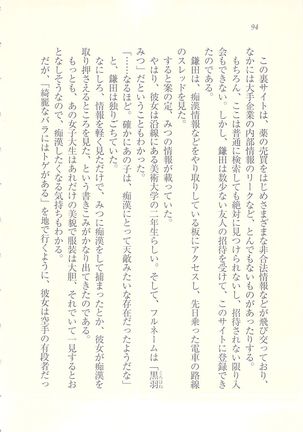 94
この裏サイトは、薬の売買をはじめさまざまな非合法情報などが飛び交っており、
なかには大手企業の内部情報のリークなど、とんでもないものがあったりする。
もちろん、ここは普通に検索しても絶対に見つけられないし、招待されない限り入
会もできない。しかし、鎌田は数少ない友人の招待を受けて、このサイトに登録でき
たのである。
鎌田は、痴漢情報などをやり取りしている板にアクセスし、先日乗った電車の路線
のスレッドを見た。
すると案の定、みつの情報が載っていた。
やはり、彼女は沿線にある美術大学の二年生らしい。そして、フルネームは「黒羽
みつ」だということもわかった。
「……なるほど。確かにあの子は、痴漢にとって天敵みたいな存在だったようだな」
と、鎌田は独りごちていた。
なにしろ、情報を軽く見ただけで、みつに痴漢をして捕まったとか、彼女が痴漢を
取り押さえるところを見た、という書きこみがかなり出てきたのである。
もっとも、あの女子大生はあれだけの美貌で服装は大胆、それでいて一見するとお
となしそうなので、痴漢したくなる気持ちもわかる。
だが、「綺麗なバラにはトゲがある」を地で行くように、彼女は空手の有段者だっ